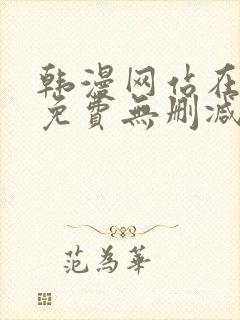 韩漫网站在
免費無删减
范為華